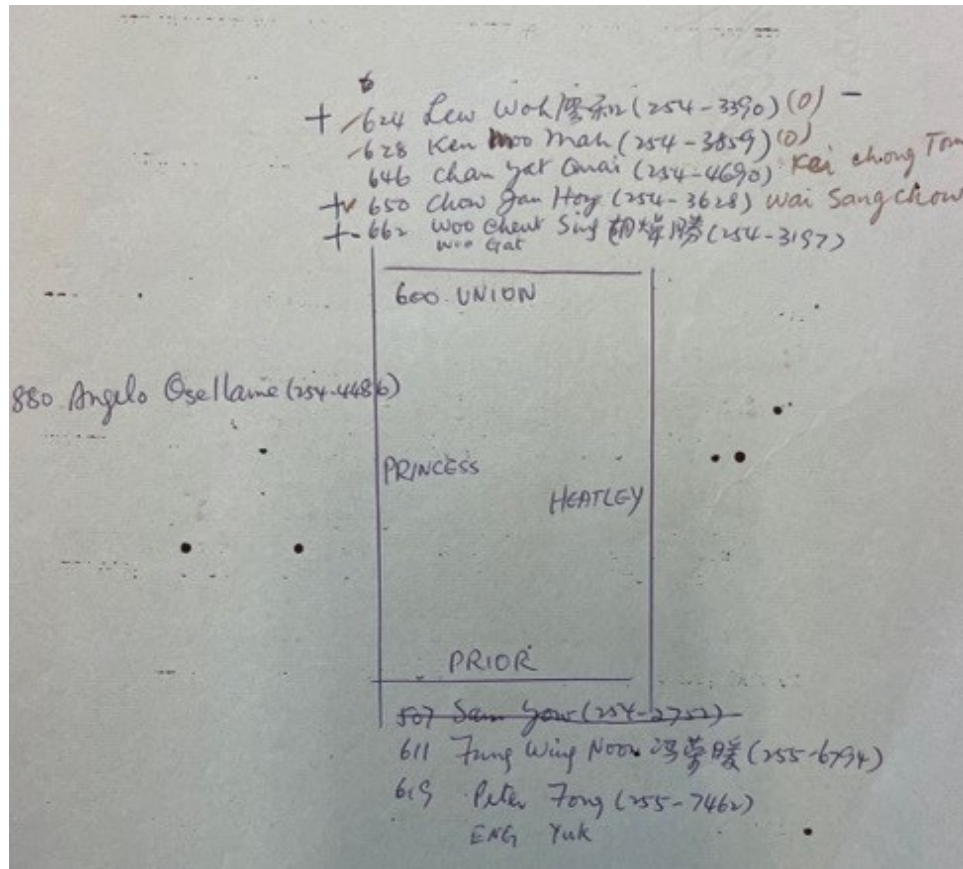 6
+ 624 Lew Woh 廖和 (254-3390) (0) -
628 Ken Moo Mah (254-3859) (0)
646 Chan Yat Quai (254-4690) Kei Chong Tom
+ 650 Chow Jan Hong (254-3628) Wai Sang Chow
+ 662 Woo Cheut Sing 胡 勝 (254-3197)
Woo Gat
600 UNION
880 Angelo Osellame (254-4486)
PRINCESS
HEATLEY
PRIOR
507 Sam Yow (254-2752)
611 Fung Wing Noon (255-6794)
619 Peter Fong (255-7462)
ENG Yuk